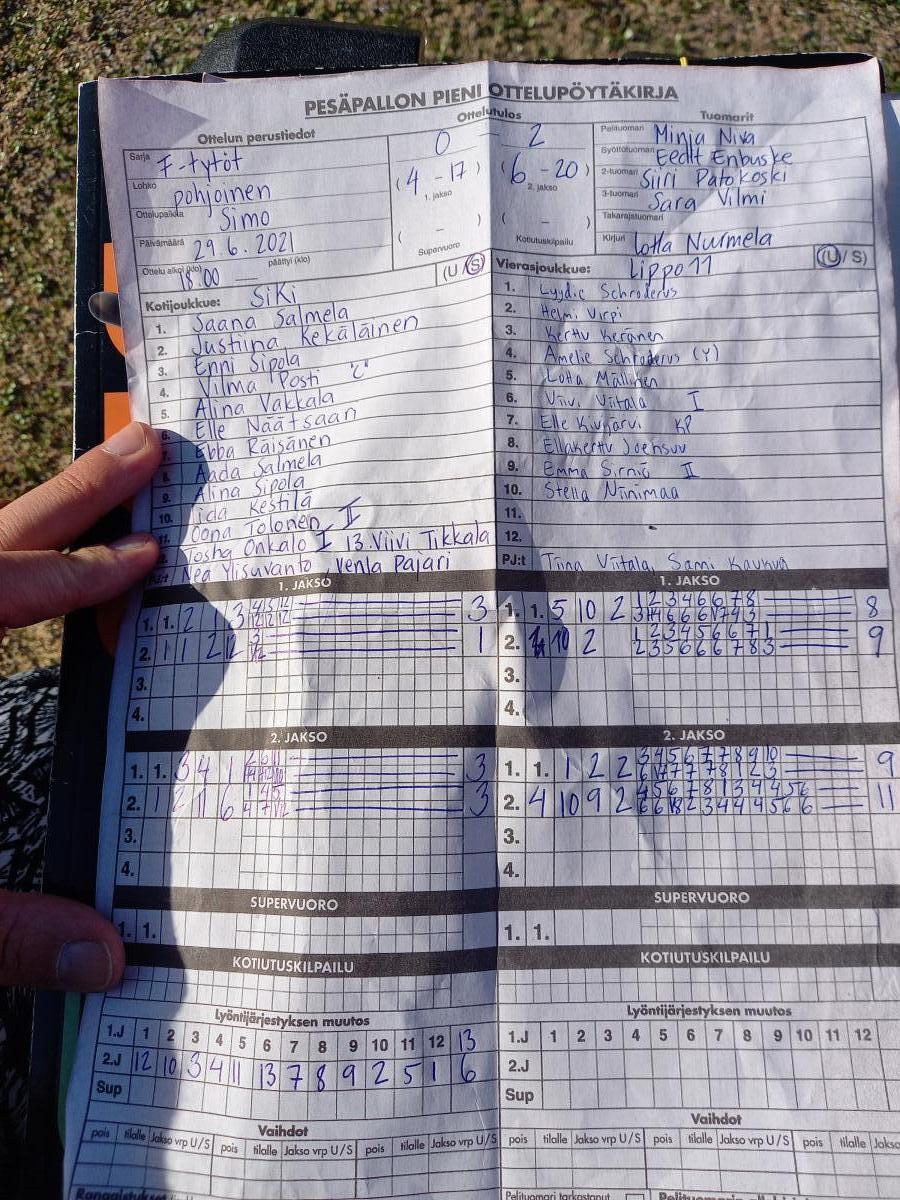 PESÄPALLON PIENI OTTELUPÖYTÄKIRJA
Ottelun perustiedot
Ottelutulos
Tuomarit
Sarja F-tytöt
Lohko pohjoinen
Ottelupaikka Simo
Päivämäärä 29.6.2021
Ottelu alkoi (klo) 18:00 — päättyi (klo)
0 – 2
(4 – 17) 1. jakso (6 – 20) 2. jakso
( – ) Supervuoro ( – ) Kotiutuskilpailu
Pelituomari Minja Niva
Syöttötuomari Eedit Enbuske
2-tuomari Siiri Patokoski
3-tuomari Sara Vilmi
Takarajatuomari
Kirjuri Lotta Nurmela
Kotijoukkue: SiKi (U/S)
1. Saana Salmela
2. Justiina Kekäläinen
3. Enni Sipola
4. Vilma Posti "C"
5. Alina Vakkala
6. Elle Näätsaari
7. Ebba Räisänen
8. Aada Salmela
9. Alina Sipola
10. Iida Kestilä
11. Oona Tolonen II
Tosha Onkalo I 13. Viivi Tikkala
PJ:t Nea Ylisuvanto, Venla Pajari
Vierasjoukkue: Lippo 11 (U/S)
1. Lyydia Schroderus
2. Helmi Virpi
3. Kerttu Keränen
4. Amelie Schroderus (Y)
5. Lotta Mällinen
6. Viivi Viitala I
7. Elle Kivijärvi KP
8. Ellakerttu Joensuu
9. Emma Sirniö II
10. Stella Niinimaa
11.
12.
PJ:t Tiina Viitala, Sami Kaukua
1. JAKSO
1. 1. 2 3 3
2. 1 1 2 12 1
3.
4.
1. JAKSO
1. 1. 5 10 2 1 2 3 4 6 6 7 8 8
2. 10 2 1 2 3 4 5 6 6 7 1 9
2 3 5 6 6 6 7 8 3
3.
4.
2. JAKSO
1. 1. 3 4 1 2 6 11 3
2. 1 2 11 6 1 4 5 3
4 7 12
3.
4.
2. JAKSO
1. 1. 1 2 2 3 4 5 6 7 7 8 9 10 9
2. 4 10 9 2 4 5 6 7 8 1 3 4 4 5 6 11
3.
4.
SUPERVUORO
1. 1.
SUPERVUORO
1. 1.
KOTIUTUSKILPAILU
KOTIUTUSKILPAILU
Lyöntijärjestyksen muutos
1.J 1 2 3 4 5 6 7 8 9 10 11 12 13
2.J 12 10 3 4 11 13 7 8 9 2 5 1 6
Sup
Lyöntijärjestyksen muutos
1.J 1 2 3 4 5 6 7 8 9 10 11 12
2.J
Sup
Vaihdot
pois tilalle Jakso vrp U/S pois tilalle Jakso vrp U/S pois tilalle Jakso vrp U/S
Vaihdot
pois tilalle Jakso vrp U/S pois tilalle Jakso vrp U/S pois tilalle Jakso
Pelituomari tarkastanut